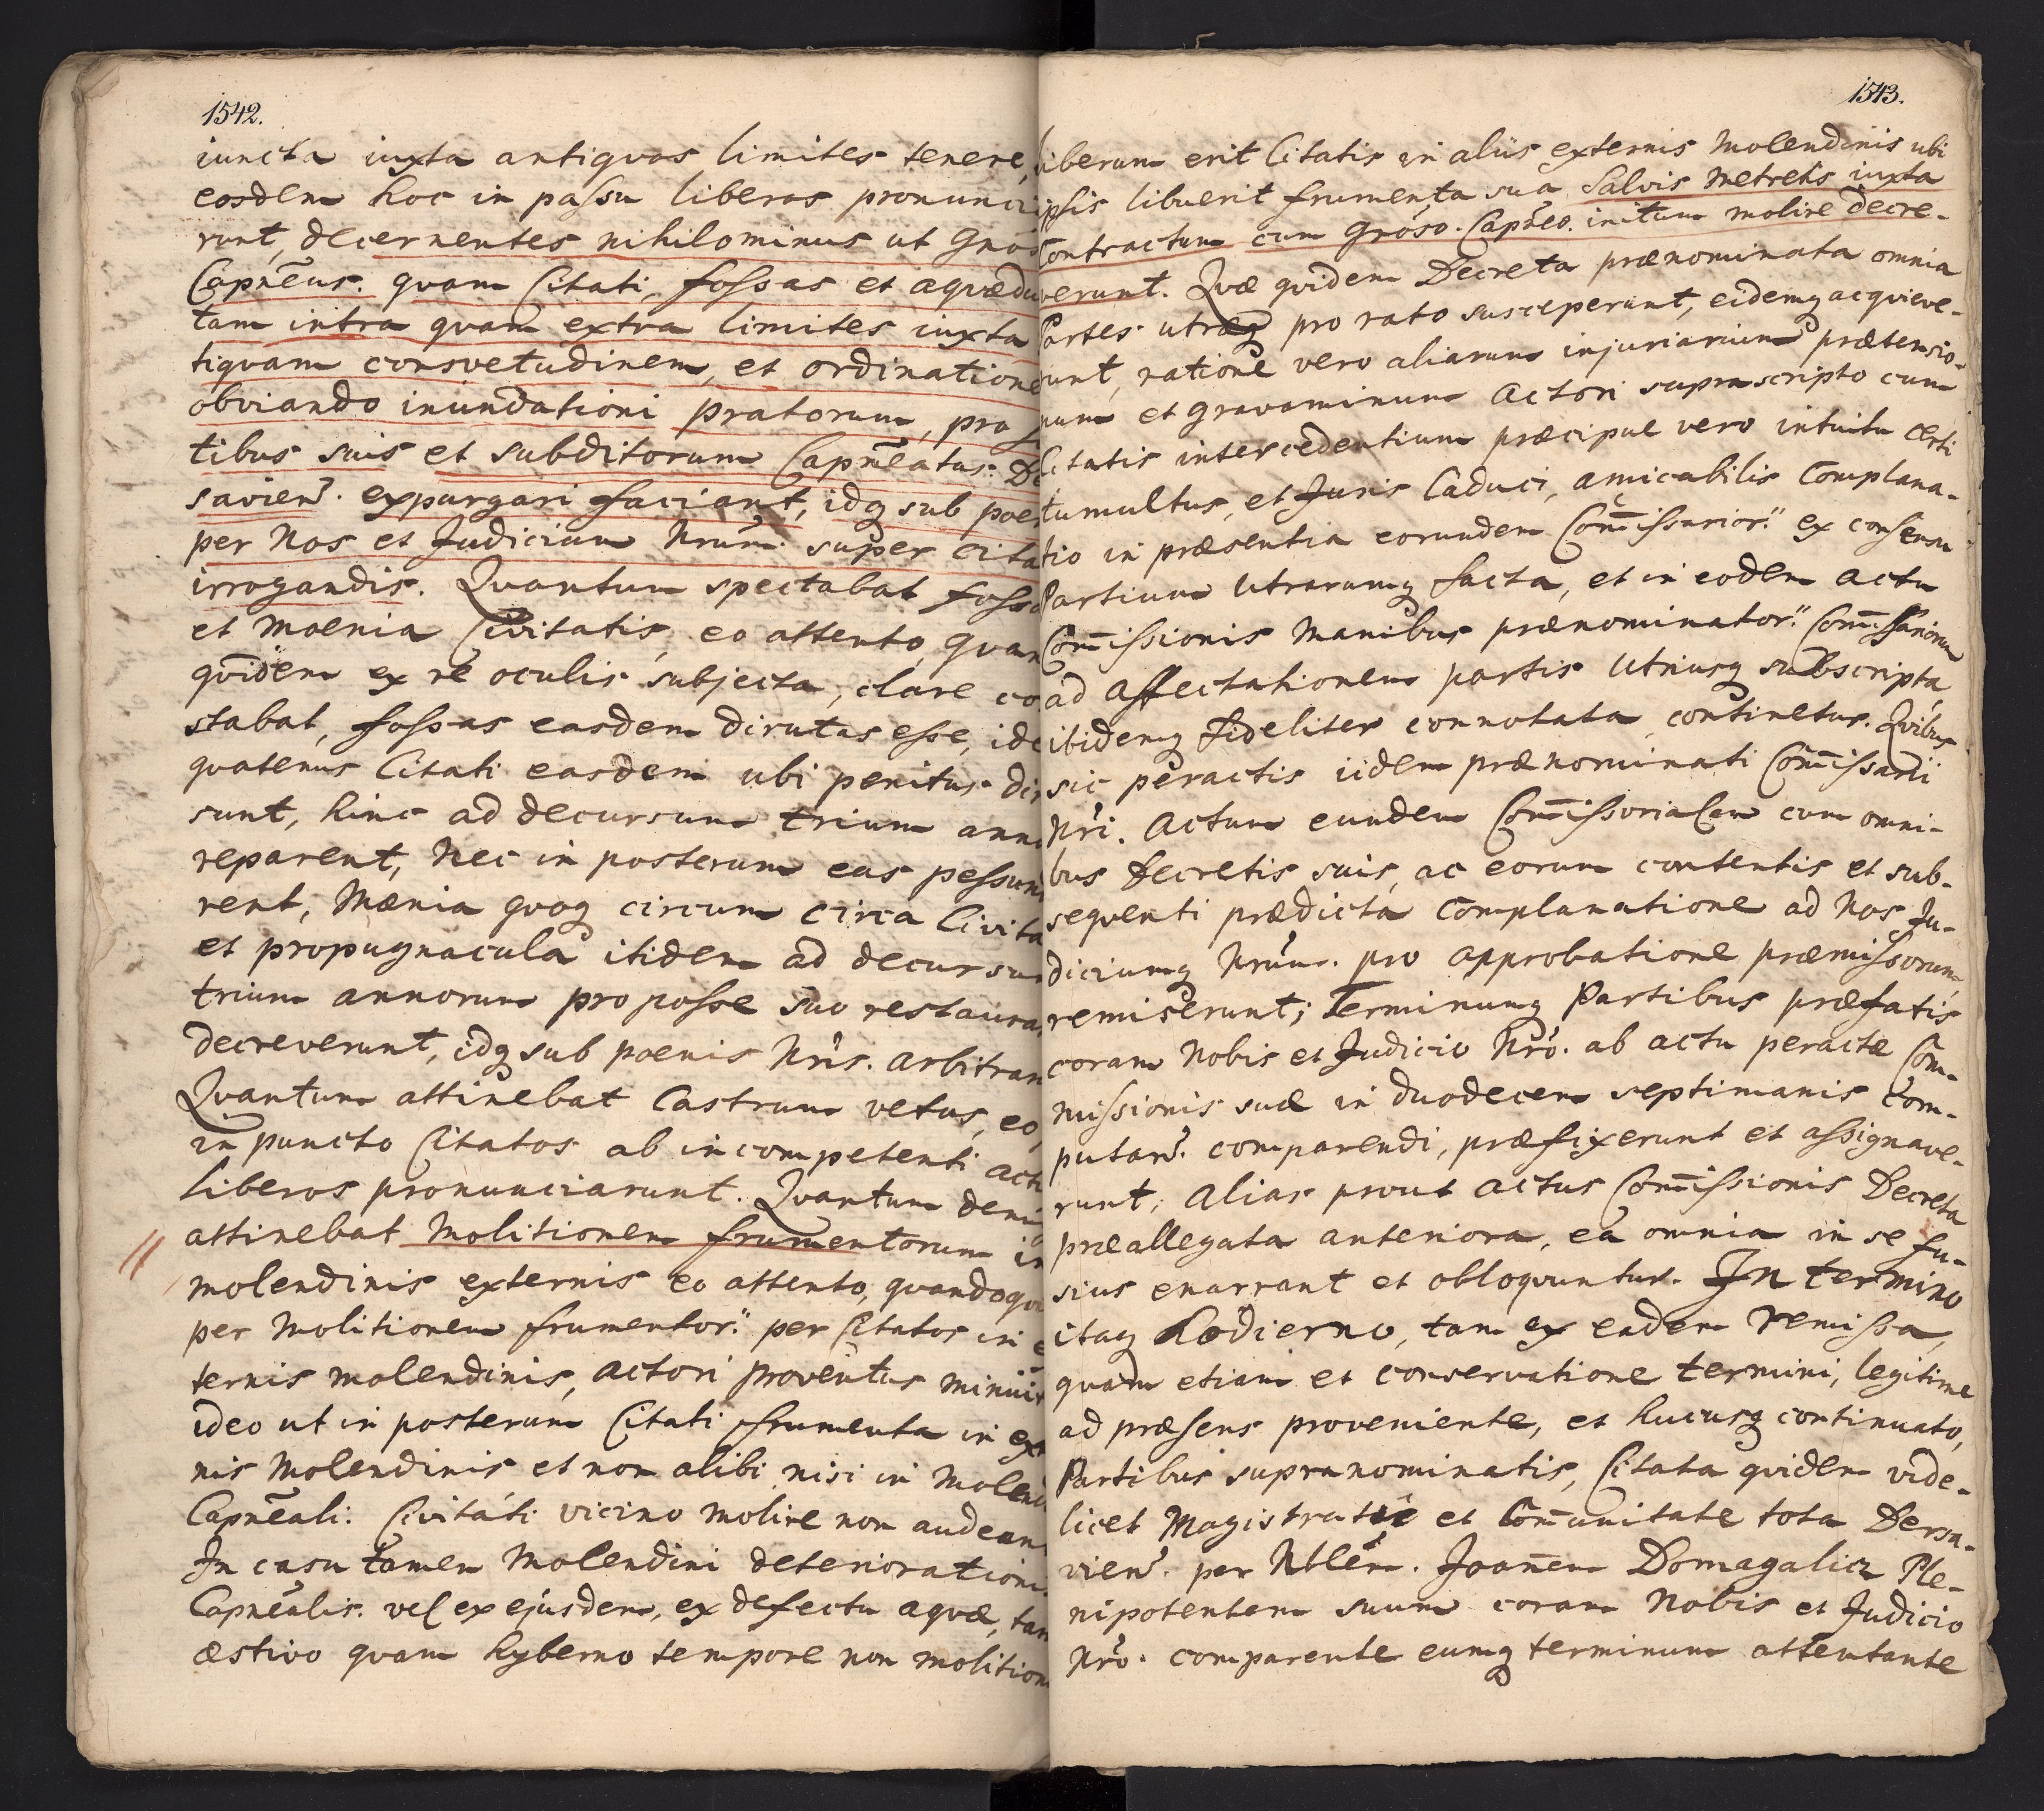 1542.
iuncta iuxta antiquos limites tenere,
eosdem hoc in passu liberos pronunci
runt, decernentes nihilominus ut Gnos
Capnēus. quam Citati, fossas et aquædu
tam intra quam extra limites iuxta
tiquam consvetudinem, et ordinatione
obviando inundationi pratorum, pro
tibus suis et subditorum Capnēatus: De
savien. expurgari faciant, idq sub poe
per Nos et Judicium Nrūm. super cita
irrogandis. Quantum spectabat foss
et moenia Civitatis, eo attento, quan
quidem ex re oculis subjecta, clare co
stabat, fossas easdem dirutas esse, ide
quatenus Citati easdem ubi penitus dir
sunt, hinc ad decursum trium ann
reparent, Nec in posterum eas pessun
rent, Mœnia quoq circum circa Civita
et propugnacula itidem ad decursu
trium annorum pro posse suo restaura
decreverunt, idq sub poenis Nris. arbitran
Quantum attinebat Castrum vetus, eo,
in puncto Citatos ab incompetenti acti
liberos pronunciarunt. Quantum deni
attinebat Molitionem frumentorum in
molendinis externis eo attento, quandoqu
per Molitionem frumentor. per Citatos in e
ternis molendinis, Actori proventus minuit
ideo ut in posterum Citati frumenta in ex
nis Molendinis et non alibi nisi in Molen
Capnēali. Civitati vicino molire non audean
In casu tamen Molendini deterioration
Capnēalis. vel ex ejusdem, ex defectu aquæ, tam
æstivo quam hyberno tempore non molition
1543.
liberum erit Citatis in aliis externis Molendinis ubi
ipsis libuerit frumenta sua Salvis Metretis iuxta
Contractum cum Groso. Capneo. initum molire decre-
verunt. Quæ quidem Decreta prænominata omnia
Partes utræq pro rato susceperunt, eidemq acquieve-
runt, ratione vero aliarum injuriarum prætensio-
num et Gravaminum Actori suprascripto cum
Citatis intercedentium præcipue vero intuitu certi
tumultus, et Juris Caduci, amicabilis Complana-
tio in præsentia eorundem Com̄issarior. ex consensu
Partium Utrarumq facta, et in eodem actu
Com̄issionis Manibus prænominator. Com̄issariorum
ad affectationem partis Utriusq subscripta,
ibidemq fideliter connotata continetur. Quibus
sic peractis iidem prænominati Com̄issarii
Nri. Actum eundem Com̄issorialem cum omni-
bus Decretis suis, ac eorum contentis et sub-
sequenti prædicta Complanatione ad Nos Ju-
diciumq Nrum. pro approbatione præmissorum,
remiserunt; Terminumq Partibus præfatis
coram Nobis et Judicio Nro. ab actu peractæ Com-
missionis suæ in duodecem septimanis Com-
putan. comparendi, præfixerunt et assignave-
runt, alias prout actus Com̄issionis Decreta
præallegata anteriora, ea omnia in se fu-
sius enarrant et obloquuntur. In termino
itaq hodierno, tam ex eadem remissa,
quam etiam et conservatione termini, legitime
ad præsens proveniente, et hucusq continuato,
Partibus supranominatis, Citata quidem vide-
licet Magistratu et Com̄unitate tota Dersa-
vien. per Nblem. Joan̄em Domagalicz Ple-
nipotentem suum coram Nobis et Judicio
Nro. comparente eumq terminum attentante